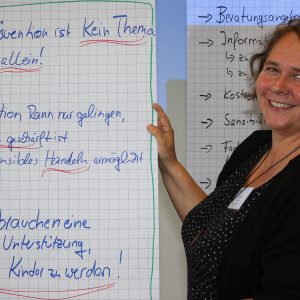 ävention ist Kein Thema
allein!
tion kann nur gelingen,
geschärft ist
sensibles Handeln ermöglicht
brauchen eine
Unterstützung,
Kinder zu werden!
→ Beratungsange
→ Informati
↳ zu
↳ zu
→ Koste
→ Sensibil
→ Fo
→